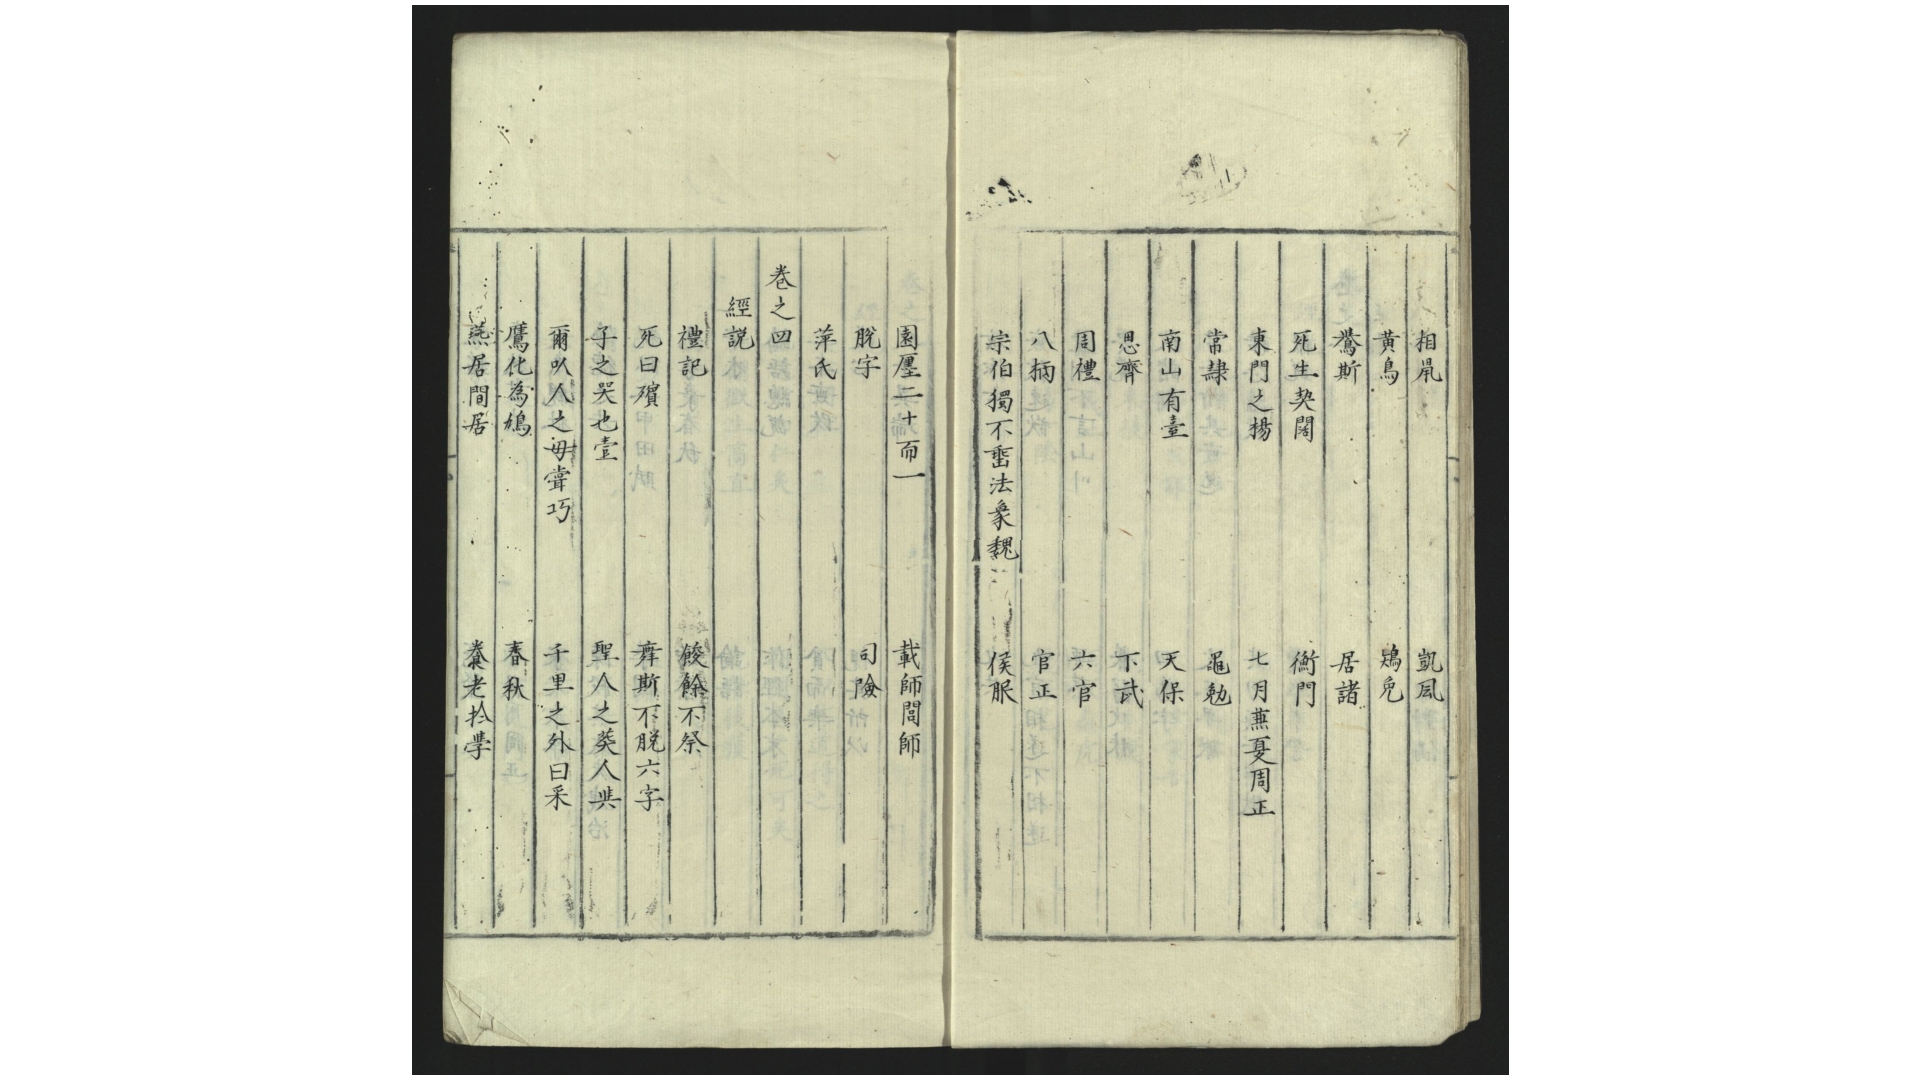 相鼠　凱風
黃鳥　鴆兔
鸒斯　居諸
死生契闊　衡門
東門之楊　七月兼夏周正
常棣　黽勉
南山有臺　天保
思齊　下武
周禮　六官
八柄　官正
宗伯獨不垂法象魏　侯服
園廛二十而一　載師閭師
脫字　司險
萍氏
卷之四
經說
禮記　餕餘不祭
死曰殯　舞斯不脫六字
子之哭也壹　聖人之葬人與
爾以人之母嘗巧　千里之外曰采
鷹化為鳩　春秋
燕居間居　養老於學